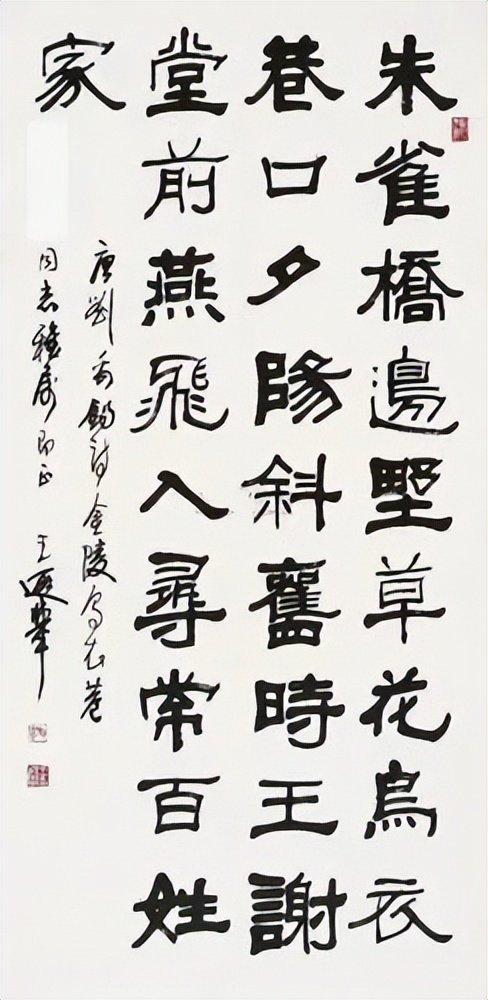 朱雀橋邊墅草花烏衣
巷口夕陽斜舊時王謝
堂前燕飛入尋常百姓
家
唐劉禹錫詩金陵烏衣巷
同志雅屬即正 王遐舉